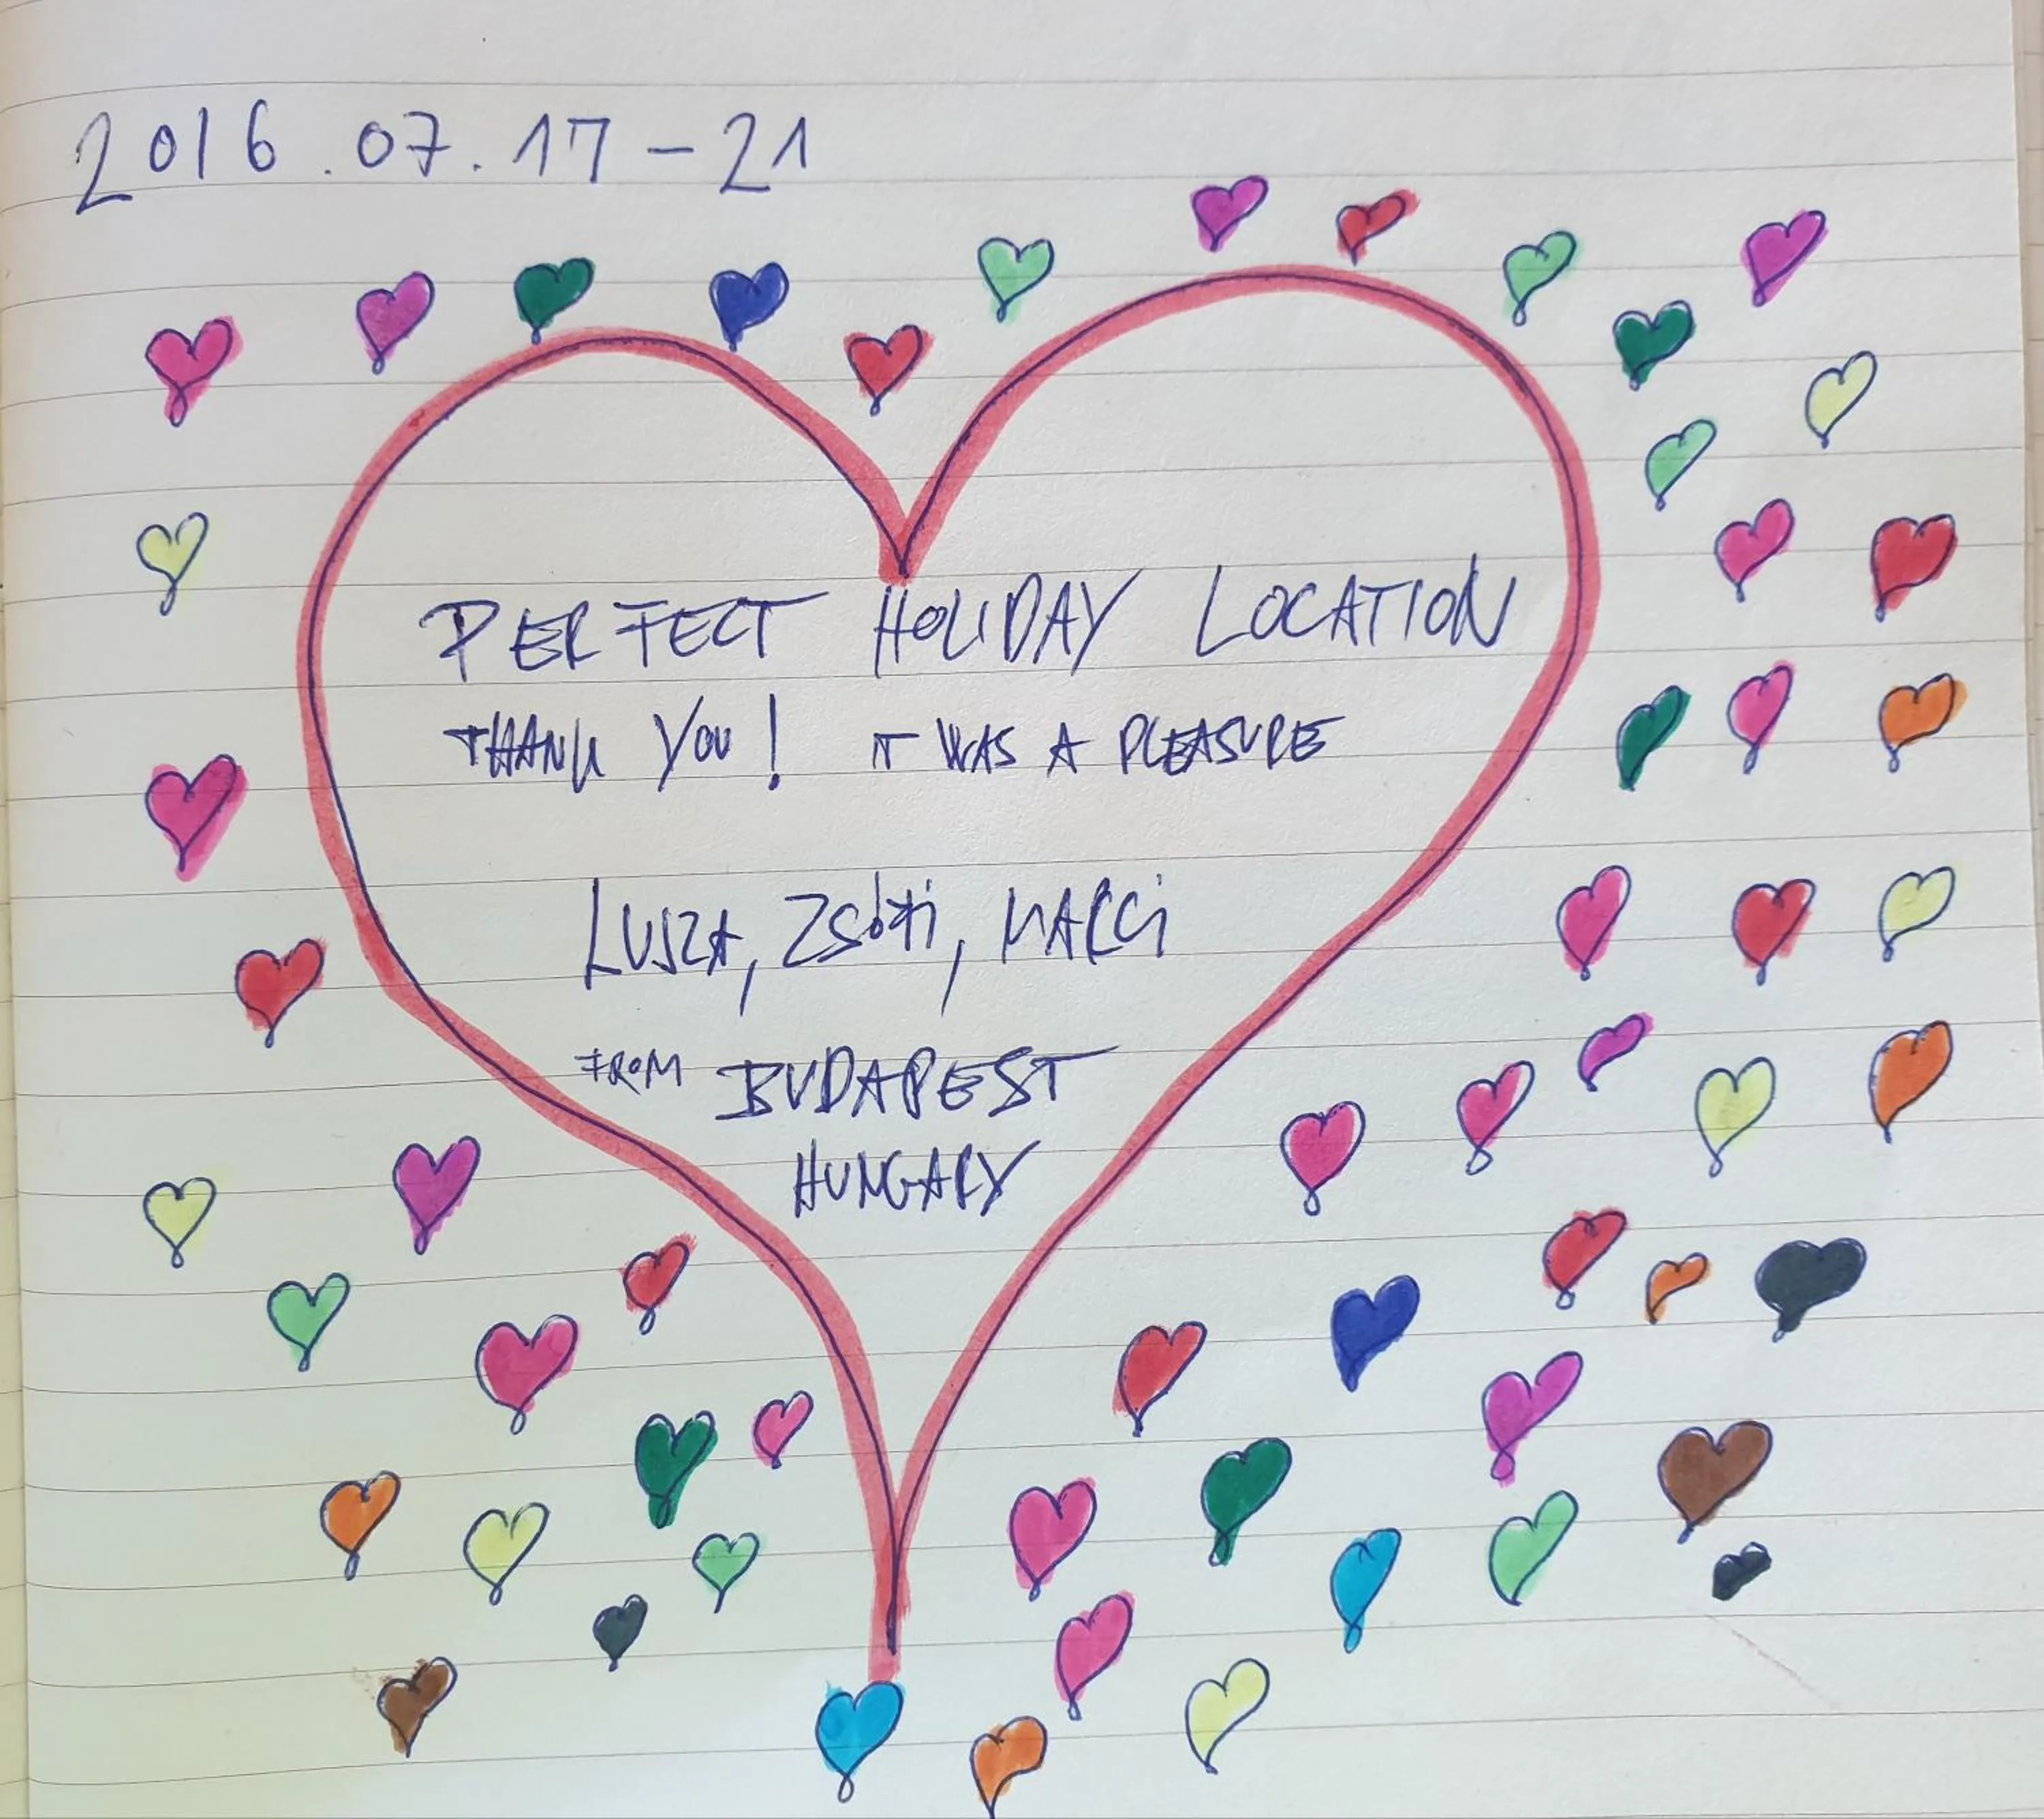 2016.07.17-21
PERFECT HOLIDAY LOCATION
THANK YOU! IT WAS A PLEASURE
LUSZA, MARCI
FROM BUDAPEST
HUNGARY